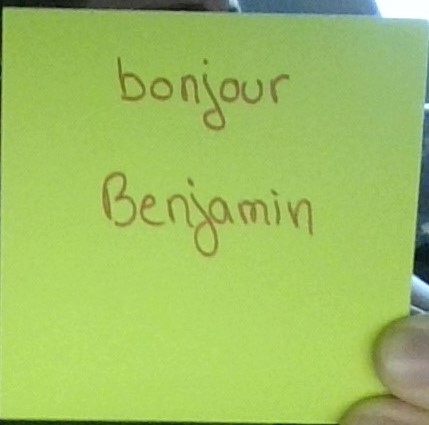 bonjour
Benjamin